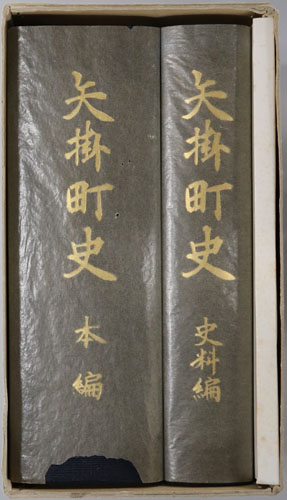 矢掛町史
本編
矢掛町史
史料編